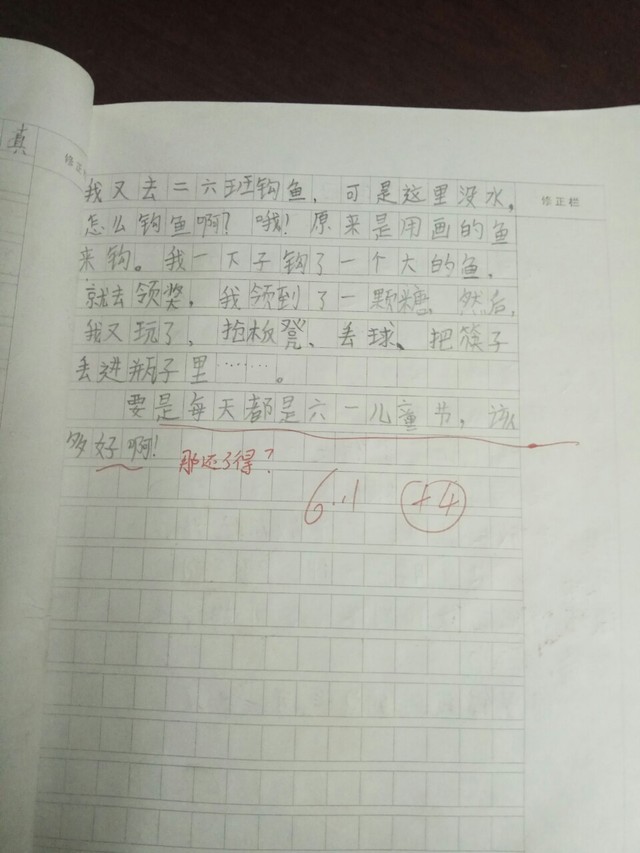 真
修正栏
修正栏
我又去二六班钩鱼，可是这里没水。
怎么钩鱼啊？哦！原来是用画的鱼
来钩。我一下子钩了一个大的鱼，
就去领奖，我领到了一颗糖，然后，
我又玩了，抢板凳、丢球、把筷子
丢进瓶子里……。
要是每天都是六一儿童节，该
多好啊！
那还了得？
6.1
+4